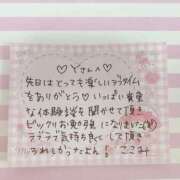 ♡Yさんへ♡
先日はとっても楽しいラブタイム
をありがとう♡いっぱい貴重
な体験談を聞かせて頂き
ビックリお勉強になりました
ラブラブ気持ち良くして頂き
うれしかったなぁ
ここみ